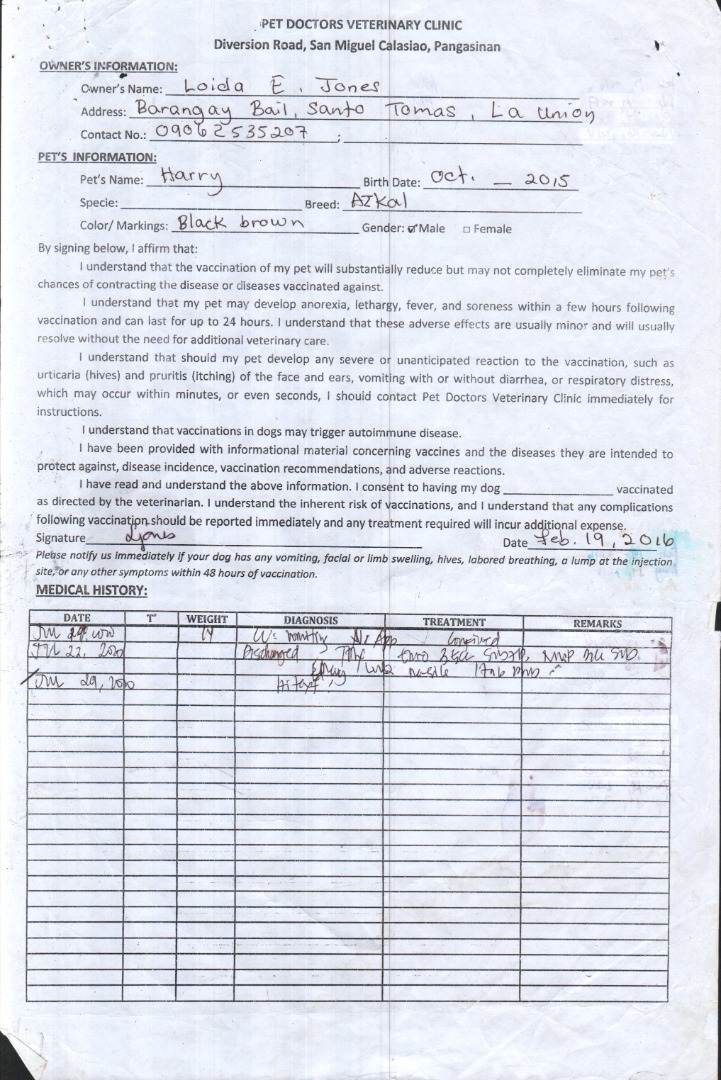 PET DOCTORS VETERINARY CLINIC
Diversion Road, San Miguel Calasiao, Pangasinan
OWNER'S INFORMATION:
Owner's Name: Loida E. Jones
Address: Barangay Bail, Santo Tomas, La Union
Contact No.: 09062535207 ;
PET'S INFORMATION:
Pet's Name: Harry Birth Date: Oct. _ 2015
Specie: Breed: AZKal
Color/ Markings: Black brown Gender: ☑ Male □ Female
By signing below, I affirm that:
I understand that the vaccination of my pet will substantially reduce but may not completely eliminate my pet's
chances of contracting the disease or diseases vaccinated against.
I understand that my pet may develop anorexia, lethargy, fever, and soreness within a few hours following
vaccination and can last for up to 24 hours. I understand that these adverse effects are usually minor and will usually
resolve without the need for additional veterinary care.
I understand that should my pet develop any severe or unanticipated reaction to the vaccination, such as
urticaria (hives) and pruritis (itching) of the face and ears, vomiting with or without diarrhea, or respiratory distress,
which may occur within minutes, or even seconds, I should contact Pet Doctors Veterinary Clinic immediately for
instructions.
I understand that vaccinations in dogs may trigger autoimmune disease.
I have been provided with informational material concerning vaccines and the diseases they are intended to
protect against, disease incidence, vaccination recommendations, and adverse reactions.
I have read and understand the above information. I consent to having my dog ____________ vaccinated
as directed by the veterinarian. I understand the inherent risk of vaccinations, and I understand that any complications
following vaccination should be reported immediately and any treatment required will incur additional expense.
Signature Ljones Date Feb. 19, 2016
Please notify us immediately if your dog has any vomiting, facial or limb swelling, hives, labored breathing, a lump at the injection
site, or any other symptoms within 48 hours of vaccination.
MEDICAL HISTORY:
DATE T° WEIGHT DIAGNOSIS TREATMENT REMARKS
14 vomiting Confined
22, 2020 Discharged
29, 2020